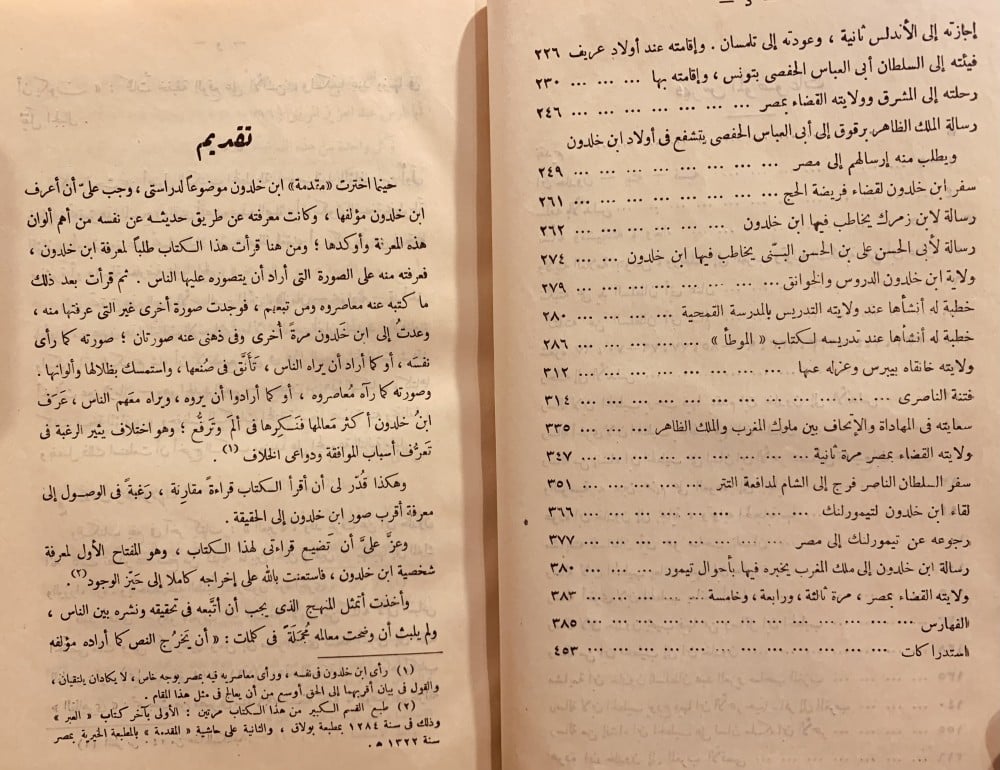 — د —
إجازته إلى الأندلس ثانية ، وعودته إلى تلمسان . وإقامته عند أولاد عريف ٢٢٦
فيئته إلى السلطان أبى العباس الحفصى بتونس ، وإقامته بها ... ... ... ٢٣٠
رحلته إلى المشرق وولايته القضاء بمصر ... ... ... ... ... ... ٢٤٦
رسالة الملك الظاهر برقوق إلى أبى العباس الحفصى يتشفع فى أولاد ابن خلدون
ويطلب منه إرسالهم إلى مصر ... ... ... ... ... ... ... ٢٤٩
سفر ابن خلدون لقضاء فريضة الحج ... ... ... ... ... ... ... ٢٦١
رسالة لابن زمرك يخاطب فيها ابن خلدون ... ... ... ... ... ... ٢٦٢
رسالة لأبى الحسن على بن الحسن البنّى يخاطب فيها ابن خلدون ... ... ... ٢٧٤
ولاية ابن خلدون الدروس والخوانق ... ... ... ... ... ... ... ٢٧٩
خطبة له أنشأها عند ولايته التدريس بالمدرسة القمحية ... ... ... ... ٢٨٠
خطبة له أنشأها عند تدريسه لكتاب « الموطأ » ... ... ... ... ... ٢٨٦
ولايته خانقاه بيبرس وعزله عنها ... ... ... ... ... ... ... ٣١٢
فتنة الناصرى ... ... ... ... ... ... ... ... ... ... ٣١٤
سعايته فى المهاداة والإتحاف بين ملوك المغرب والملك الظاهر ... ... ... ٣٣٥
ولايته القضاء بمصر مرة ثانية ... ... ... ... ... ... ... ... ٣٤٧
سفر السلطان الناصر فرج إلى الشام لمدافعة التتر ... ... ... ... ... ٣٥١
لقاء ابن خلدون لتيمورلنك ... ... ... ... ... ... ... ... ٣٦٦
رجوعه عن تيمورلنك إلى مصر ... ... ... ... ... ... ... ... ٣٧٧
رسالة ابن خلدون إلى ملك المغرب يخبره فيها بأحوال تيمور ... ... ... ٣٨٠
ولايته القضاء بمصر ، مرة ثالثة ، ورابعة ، وخامسة ... ... ... ... ٣٨٣
الفهارس ... ... ... ... ... ... ... ... ... ... ... ٣٨٥
استدراكات ... ... ... ... ... ... ... ... ... ... ٤٥٣
تقديم
حينما اخترت «مقدمة» ابن خلدون موضوعاً لدراستى ، وجب علىّ أن أعرف
ابن خلدون مؤلفها ، وكانت معرفته عن طريق حديثه عن نفسه من أهم ألوان
هذه المعرفة وأوكدها ؛ ومن هنا قرأت هذا الكتاب طلباً لمعرفة ابن خلدون ،
فعرفته منه على الصورة التى أراد أن يتصوره عليها الناس . ثم قرأت بعد ذلك
ما كتبه عنه معاصروه ومن تبعهم ، فوجدت صورة أخرى غير التى عرفتها منه ،
وعدتُ إلى ابن خَلدون مرةً أُخرى وفى ذهنى عنه صورتان ؛ صورته كما رأى
نفسَه ، أو كما أراد أن يراه الناس ، تَأَنَّق فى صُنعها ، واستمسك بظلالها وألوانها .
وصورته كما رآه مُعاصروه ، أو كما أرادوا أن يروه ، ويراه معَهم الناس ، عَرَف
ابنُ خلدون أكثر مَعالمها فنَكِرها فى ألم وتَرفُّع ؛ وهو اختلاف يثير الرغبة فى
تَعرُّف أسباب الموافقة ودواعى الخلاف (١) .
وهكذا قُدّر لى أن أقرأ الكتاب قراءةً مقارنة ، رَغبةً فى الوصول إلى
معرفة أقرب صور ابن خلدون إلى الحقيقة .
وعزَّ علىَّ أن تَضيع قراءتى لهذا الكتاب ، وهو المفتاح الأول لمعرفة
شخصية ابن خلدون ، فاستعنت بالله على إخراجه كاملا إلى حيّز الوجود(٢).
وأخذت أتمثل المنهج الذى يجب أن أتَّبعه فى تحقيقه ونشره بين الناس ،
ولم يلبث أن وضحت معالمه مُجمَلَةً فى كلمات : « أن يَخرُج النص كما أراده مؤلفه
(١) رأى ابن خلدون فى نفسه ، ورأى معاصريه فيه بمصر بوجه خاص ، لا يكادان يلتقيان ،
والقول فى بيان أقربهما إلى الحق أوسع من أن يعالج فى مثل هذا المقام .
(٢) طبع القسم الكبير من هذا الكتاب مرتين : الأولى بآخر كتاب « العبر »
وذلك فى سنة ١٢٨٤ بمطبعة بولاق ، والثانية على حاشية « المقدمة » بالمطبعة الخيرية بمصر
سنة ١٣٢٢ هـ .